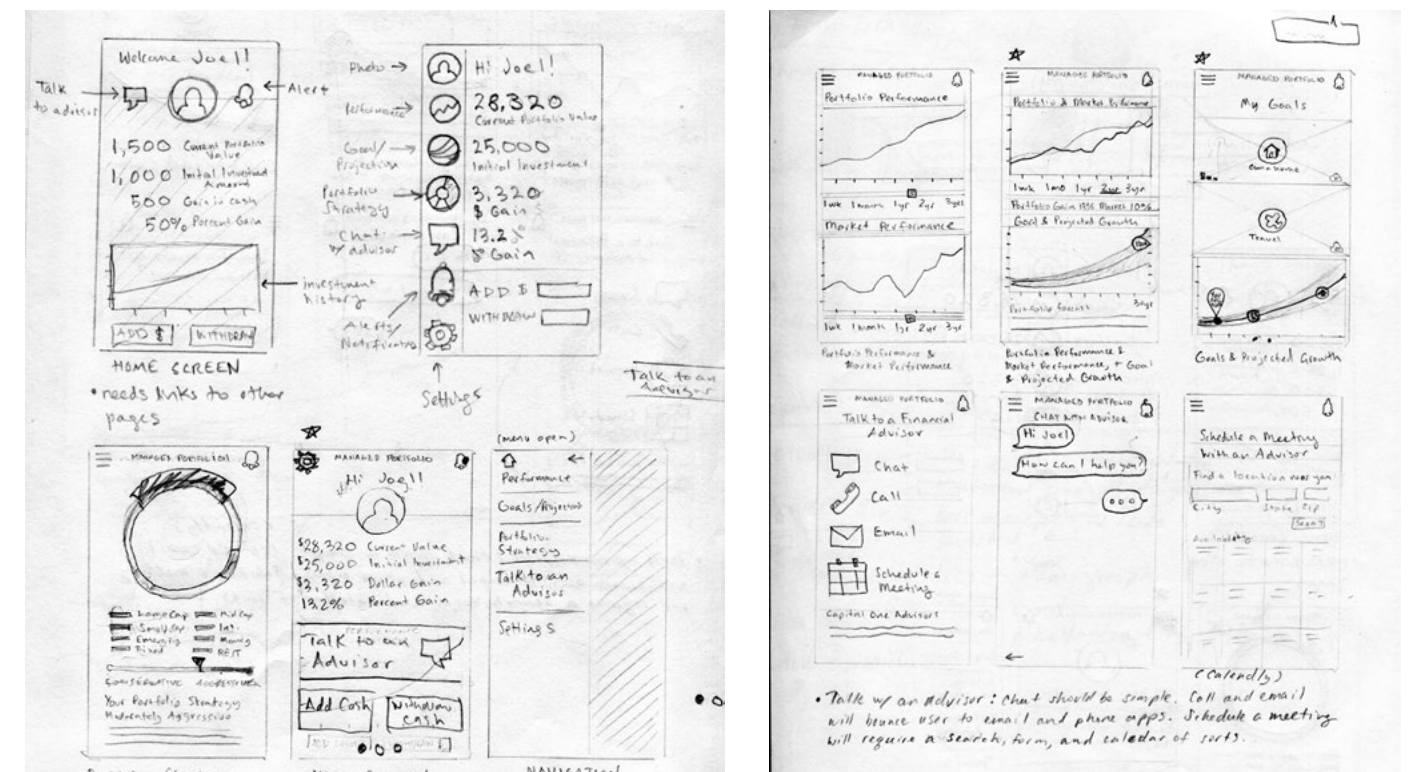 Welcome Joel!
Talk
to advisor
Alert
1,500 Current Portfolio
Value
1,000 Initial Invested
Amount
500 Gain in cash
50% Percent Gain
investment
history
ADD $
WITHDRAW
HOME SCREEN
• needs links to other
pages
Photo →
Performance →
Goal/
Projection
Portfolio
Strategy
Chat
w/ advisor
Alerts/
Notifications
Settings
Hi Joel!
28,320
Current Portfolio Value
25,000
Initial Investment
3,320
$ Gain
13.2%
% Gain
ADD $
WITHDRAW
Talk to an
Advisor
MANAGED PORTFOLIO
Large Cap
Mid Cap
Small Cap
Int.
Emerging
Money
Fixed
REIT
CONSERVATIVE
AGGRESSIVE
Your Portfolio Strategy
Moderately Aggressive
MANAGED PORTFOLIO
Hi Joel!
$28,320 Current Value
$25,000 Initial Investment
$3,320 Dollar Gain
13.2% Percent Gain
PERFORMANCE
Talk to an
Advisor
Add Cash
Withdraw
Cash
(menu open)
Performance
Goals/Projections
Portfolio
Strategy
Talk to an
Advisor
Settings
NAVIGATION
MANAGED PORTFOLIO
Portfolio Performance
1wk 1month 1yr 2yr 3yrs
Market Performance
1wk 1month 1yr 2yr 3yr
Portfolio Performance &
Market Performance
MANAGED PORTFOLIO
Portfolio & Market Performance
1wk 1mo 1yr 2yr 3yr
Portfolio Gain 13% Market 10%
Goal & Projected Growth
30yr
Portfolio forecast
Portfolio Performance &
Market Performance, + Goal
& Projected Growth
MANAGED PORTFOLIO
My Goals
Own a Home
Travel
Goals & Projected Growth
MANAGED PORTFOLIO
Talk to a Financial
Advisor
Chat
Call
Email
Schedule a
Meeting
Capital One Advisors
MANAGED PORTFOLIO
CHAT WITH ADVISOR
Hi Joel
How can I help you?
Schedule a Meeting
With an Advisor
Find a location near you
City State Zip
Search
Availability
(Calendly)
• Talk w/ an Advisor: Chat should be simple. Call and email
will bounce user to email and phone apps. Schedule a meeting
will require a search, form, and caledar of sorts.